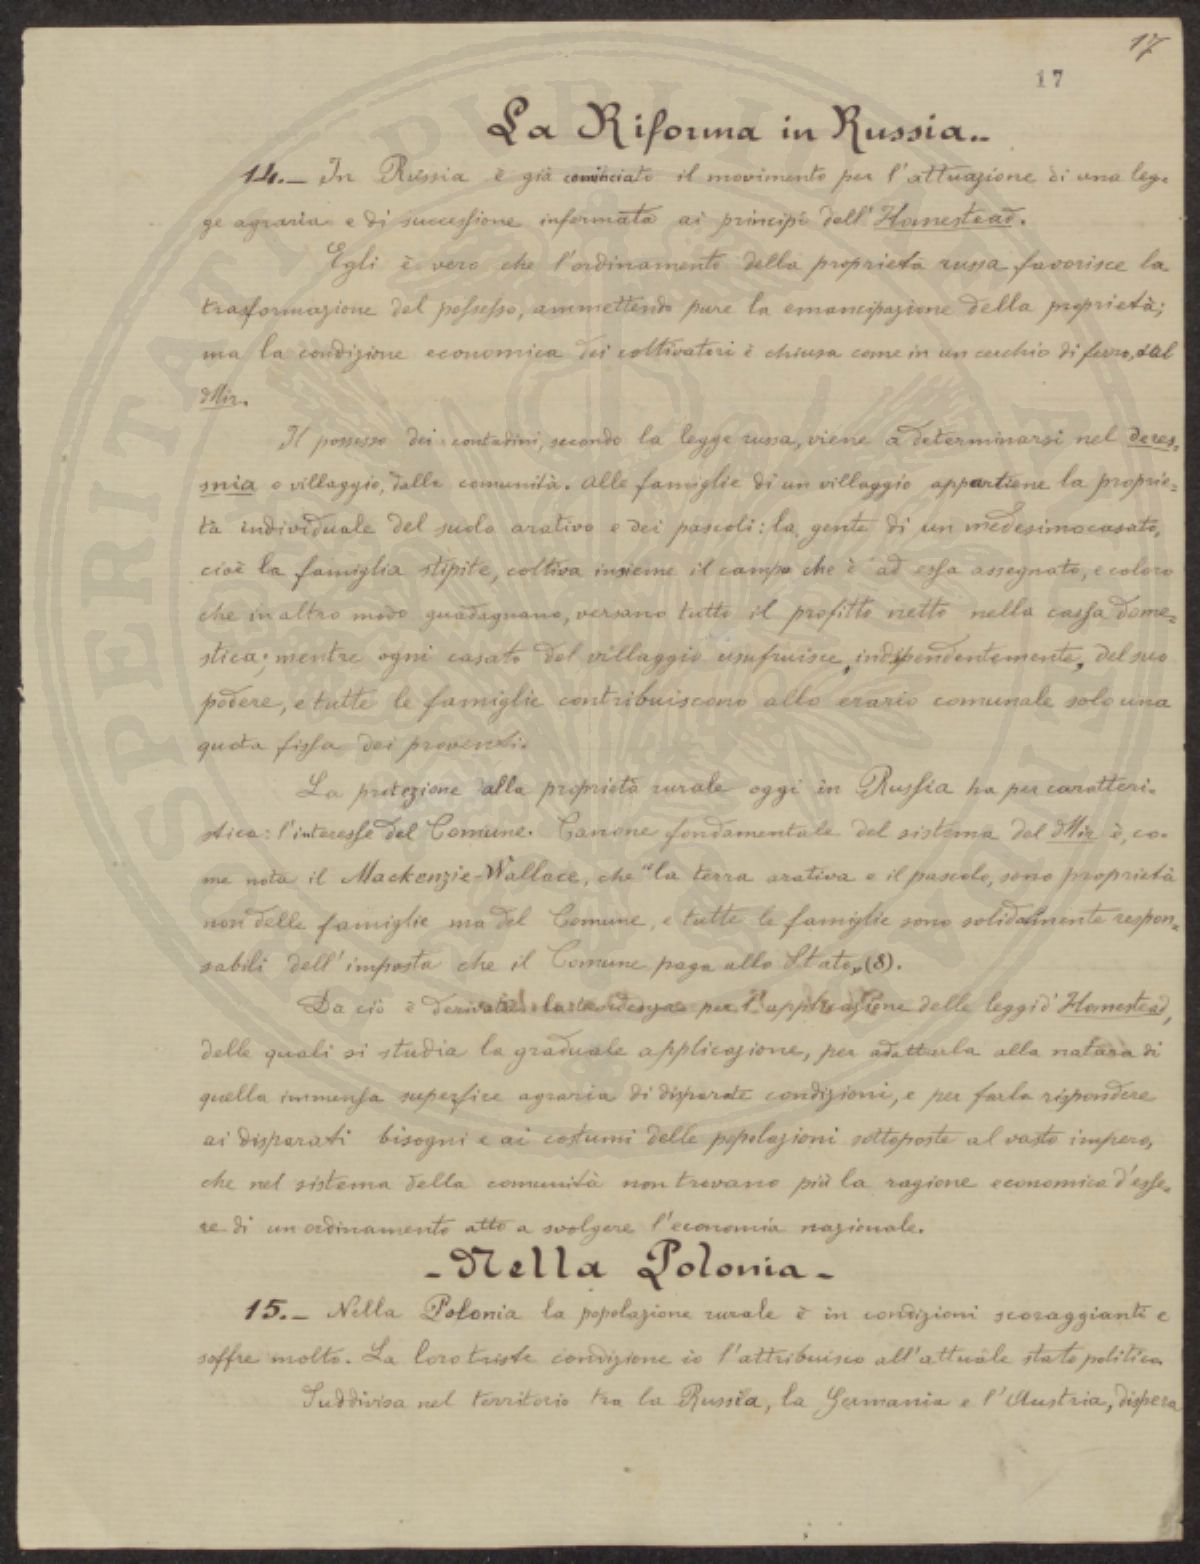 17
17
La Riforma in Russia..
14.— In Russia è già cominciato il movimento per l'attuazione di una leg=
ge agraria e di successione informata ai principî dell'Homestead.
Egli è vero che l'ordinamento della proprietà russa favorisce la
trasformazione del possesso, ammettendo pure la emancipazione della proprietà;
ma la condizione economica dei coltivatori è chiusa come in un cerchio di ferro, dal
Mir.
Il possesso dei contadini, secondo la legge russa, viene a determinarsi nel deres=
snia o villaggio, dalla comunità. Alle famiglie di un villaggio appartiene la proprie=
tà individuale del suolo arativo e dei pascoli: la gente di un medesimo casato,
cioè la famiglia stipite, coltiva insieme il campo che è ad essa assegnato, e coloro
che in altro modo guadagnano, versano tutto il profitto netto nella cassa dome=
stica; mentre ogni casato del villaggio usufruisce, indipendentemente, del suo
podere, e tutte le famiglie contribuiscono allo erario comunale solo una
quota fissa dei proventi.
La protezione alla proprietà rurale oggi in Russia ha per caratteri=
stica: l'interesse del Comune. Canone fondamentale del sistema del Mir è, co=
me nota il Mackenzie-Wallace, che "la terra arativa e il pascolo, sono proprietà
non delle famiglie ma del Comune, e tutte le famiglie sono solidalmente respon=
sabili dell'imposta che il Comune paga allo Stato„ (8).
Da ciò è derivata la tendenza per l'applicazione delle leggi d'Homestead,
delle quali si studia la graduale applicazione, per adattarla alla natura di
quella immensa superfice agraria di disparate condizioni, e per farla rispondere
ai disparati bisogni e ai costumi delle popolazioni sottoposte al vasto impero,
che nel sistema della comunità non trovano più la ragione economica d'esse=
re di un ordinamento atto a svolgere l'economia nazionale.
- Nella Polonia -
15.— Nella Polonia la popolazione rurale è in condizioni scoraggianti e
soffre molto. La loro triste condizione io l'attribuisco all'attuale stato politico.
Suddivisa nel territorio tra la Russia, la Germania e l'Austria, dispera